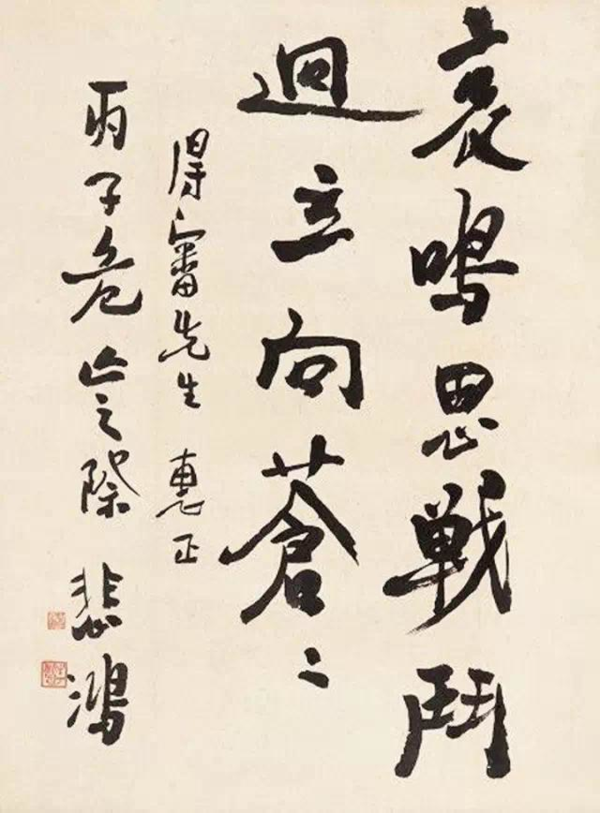 哀鳴思戰鬥
迥立向蒼〻
得審先生 惠正
丙子危亡之際 悲鴻